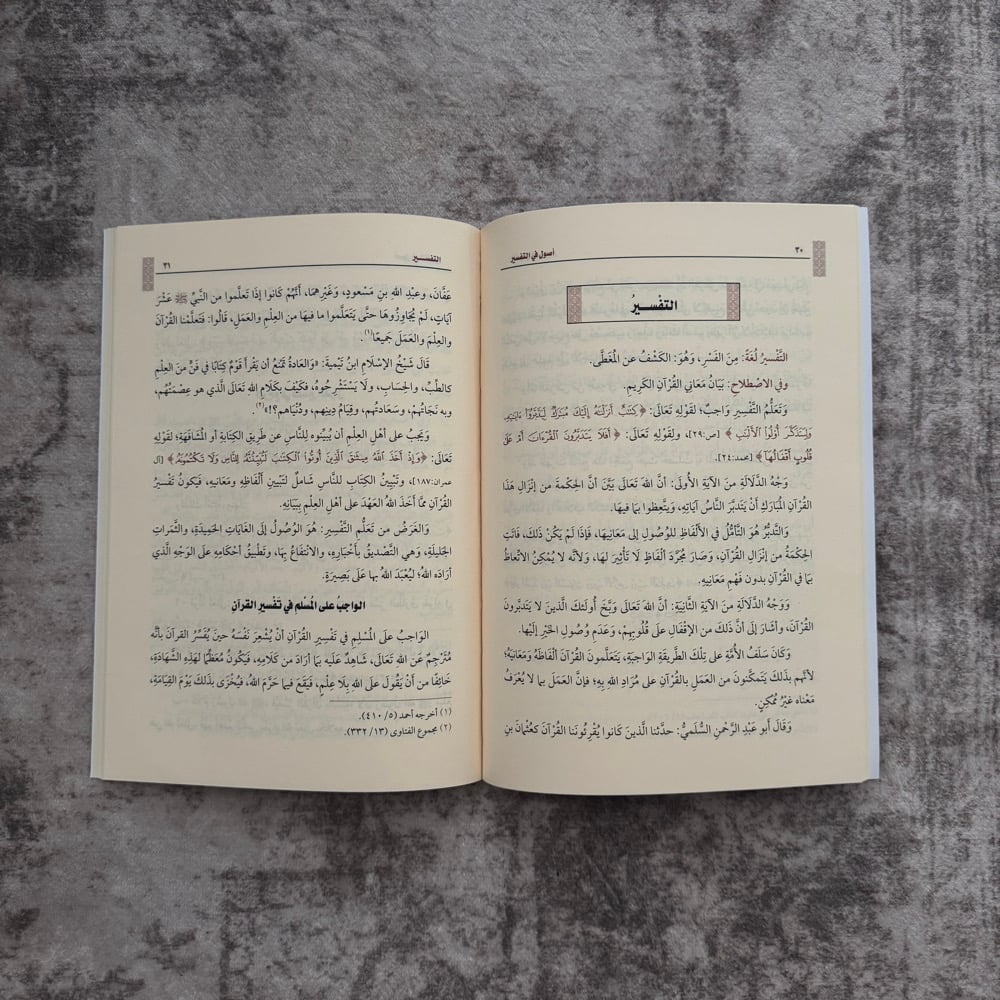 ٣٠
أصول في التفسير
التفْسيرُ
التَّفْسيرُ لُغَةً: مِنَ الفَسْرِ، وَهُوَ: الكَشْفُ عن المُغَطَّى.
وفي الاصْطلاحِ: بَيَانُ مَعَاني القُرآنِ الكَرِيمِ.
وَتَعَلُّمُ التَّفْسيرِ واجبٌ؛ لقَوْلِهِ تَعَالَى: ﴿كِتَٰبٌ أَنزَلْنَٰهُ إِلَيْكَ مُبَٰرَكٌ لِّيَدَّبَّرُوٓا۟ ءَايَٰتِهِۦ
وَلِيَتَذَكَّرَ أُو۟لُوا۟ ٱلْأَلْبَٰبِ﴾ [ص:٢٩]، ولقَوْلِهِ تَعَالَى: ﴿أَفَلَا يَتَدَبَّرُونَ ٱلْقُرْءَانَ أَمْ عَلَىٰ
قُلُوبٍ أَقْفَالُهَآ﴾ [محمد:٢٤].
وَجْهُ الدَّلالَةِ مِنَ الآيَةِ الأُولَى: أَنَّ اللهَ تَعَالَى بَيَّنَ أَنَّ الحِكْمَةَ من إنْزَالِ هَذَا
القُرآنِ المُبَارَكِ أَنْ يَتَدَبَّرَ النَّاسُ آيَاتِهِ، ويَتَّعِظُوا بمَا فيهَا.
والتَّدَبُّرُ هُوَ التَّأَمُّلُ في الأَلْفَاظِ للوُصُولِ إلى مَعَانِيهَا، فَإذَا لَمْ يَكُنْ ذَلكَ، فَاتَتِ
الحِكْمَةُ من إنْزَالِ القُرْآنِ، وَصَارَ مُجَرَّدَ أَلْفَاظٍ لا تَأْثيرَ لهَا، وَلأَنَّه لا يُمْكِنُ الاتِّعَاظُ
بمَا في القُرْآنِ بدون فَهْمِ مَعَانِيهِ.
وَوَجْهُ الدَّلَالَةِ مِنَ الآيَةِ الثَّانِيَةِ: أَنَّ اللهَ تَعَالَى وَبَّخَ أُولَئكَ الَّذينَ لا يَتَدَبَّرونَ
القُرْآنَ، وأشَارَ إلى أنَّ ذَلكَ من الإقْفَالِ عَلَى قُلُوبهِمْ، وَعَدَمِ وُصُولِ الخَيْرِ إِلَيْهَا.
وَكَانَ سَلَفُ الأُمَّةِ على تِلْكَ الطَّريقَةِ الوَاجبَةِ، يَتَعَلَّمُونَ القُرْآنَ أَلْفَاظَهُ وَمَعَانيَهُ؛
لأنَّهم بذَلكَ يَتَمكَّنونَ من العَمَلِ بالقُرآنِ عَلى مُرَادِ اللهِ بِهِ؛ فإنَّ العَمَلَ بما لا يُعْرَفُ
مَعْناه غيرُ مُمْكِنٍ.
وَقَالَ أَبو عَبْدِ الرَّحْمنِ السُّلَميُّ: حدَّثنا الَّذينَ كانوا يُقْرِئُونَنا القُرْآنَ كَعُثْمَانَ بنِ
التفسـير
٣١
عَفَّانَ، وعبْدِ اللهِ بنِ مَسْعودٍ، وَغَيْرِهمَا، أَنَّهُمْ كَانُوا إذَا تَعلَّموا من النَّبيِّ ﷺ عَشْرَ
آيَاتٍ، لَمْ يُجَاوِزُوهَا حتَّى يَتَعَلَّموا ما فيهَا من العِلْمِ والعَمَلِ، قَالُوا: فَتَعلَّمْنا القُرْآنَ
والعِلْمَ وَالعَمَلَ جَميعًا(١).
قَالَ شَيْخُ الإِسْلَامِ ابنُ تَيْميةَ: «وَالعادةُ تَمْنَعُ أَن يَقْرأَ قَوْمٌ كتَابًا في فَنٍّ منَ العِلْمِ
كالطِّبِّ، والحِسَابِ، ولَا يَسْتَشْرِحُوهُ، فَكَيْفَ بكَلَامِ اللهِ تَعَالَى الَّذي هو عِصْمَتُهُمْ،
وبه نَجَاتُهُمْ، وسَعَادتُهُم، وقيَامُ دِينِهم، ودُنْيَاهم؟!»(٢).
وَيَجبُ على أَهْلِ العِلْمِ أن يُبيِّنوه للنَّاسِ عن طَرِيقِ الكِتَابةِ أو المُشَافَهَةِ؛ لقَوْلِهِ
تَعَالَى: ﴿وَإِذْ أَخَذَ ٱللَّهُ مِيثَٰقَ ٱلَّذِينَ أُوتُوا۟ ٱلْكِتَٰبَ لَتُبَيِّنُنَّهُۥ لِلنَّاسِ وَلَا تَكْتُمُونَهُۥ﴾ [آل
عمران:١٨٧]، وتَبْيينُ الكِتَابِ للنَّاسِ شَاملٌ لتَبْيينِ أَلْفَاظِهِ ومَعَانِيهِ، فَيَكُونُ تَفْسيرُ
القُرآنِ ممَّا أَخَذَ اللهُ العَهْدَ على أَهْلِ العِلْمِ ببَيَانِهِ.
وَالغَرَضُ من تَعلُّمِ التَّفْسِيرِ: هُوَ الوُصُولُ إلى الغَايَاتِ الحَمِيدَةِ، والثَّمَراتِ
الجَليلَةِ، وَهيَ التَّصْديقُ بأَخْبَارِهِ، والانْتفَاعُ بهَا، وتَطْبيقُ أَحْكَامِهِ عَلَى الوَجْهِ الَّذي
أرَادَه اللهُ؛ ليُعْبَدَ اللهُ بهَا عَلَى بَصِيرَةٍ.
الواجبُ على المُسْلم في تَفْسير القرآنِ
الوَاجبُ على المُسْلِمِ في تَفْسيرِ القُرْآنِ أَنْ يُشْعِرَ نَفْسَهُ حينَ يُفَسِّرُ القرآنَ بأنَّه
مُتَرْجِمٌ عَن اللهِ تَعَالَى، شَاهدٌ عَلَيه بمَا أَرَادَ من كَلَامِهِ، فَيَكُونُ مُعَظِّمًا لهَذِهِ الشَّهَادَةِ،
خَائفًا من أَنْ يَقُولَ عَلَى اللهِ بلَا عِلْمٍ، فَيَقَعَ فيمَا حَرَّمَ اللهُ، فَيُخْزَى بذَلكَ يَوْمَ القِيَامَةِ،
(١) أخرجه أحمد (٥/ ٤١٠).
(٢) مجموع الفتاوى (١٣/ ٣٣٢).